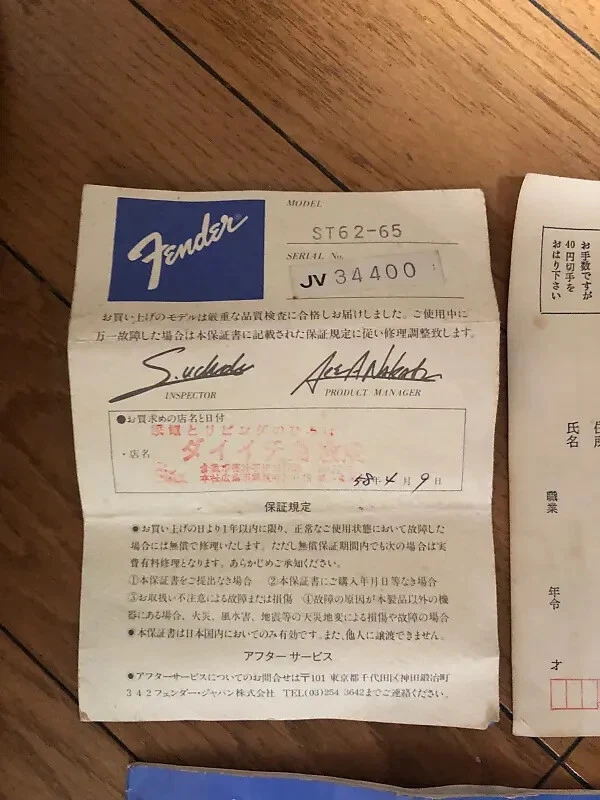 Fender®
MODEL
ST62-65
SERIAL No.
JV 34400
お買い上げのモデルは厳重な品質検査に合格しお届けしました。ご使用中に
万一故障した場合は本保証書に記載された保証規定に従い修理調整致します。
INSPECTOR
PRODUCT MANAGER
●お買求めの店名と日付
・店名
ダイイチ
58年4月9日
保証規定
●お買い上げの日より1年以内に限り、正常なご使用状態において故障した
場合には無償で修理いたします。ただし無償保証期間内でも次の場合は実
費有料修理となります。あらかじめご承知ください。
①本保証書をご提出なき場合 ②本保証書にご購入年月日等なき場合
③お取扱い不注意による故障または損傷 ④故障の原因が本製品以外の機
器にある場合、火災、風水害、地震等の天災地変による損傷や故障の場合
●本保証書は日本国内においてのみ有効です。また、他人に譲渡できません。
アフターサービス
●アフターサービスについてのお問合せは〒101 東京都千代田区神田鍛冶町
342フェンダー・ジャパン株式会社 TEL(03)254 3642までご連絡ください。
お手数ですが
40円切手を
おはり下さい
住所
氏名
職業
年令
才